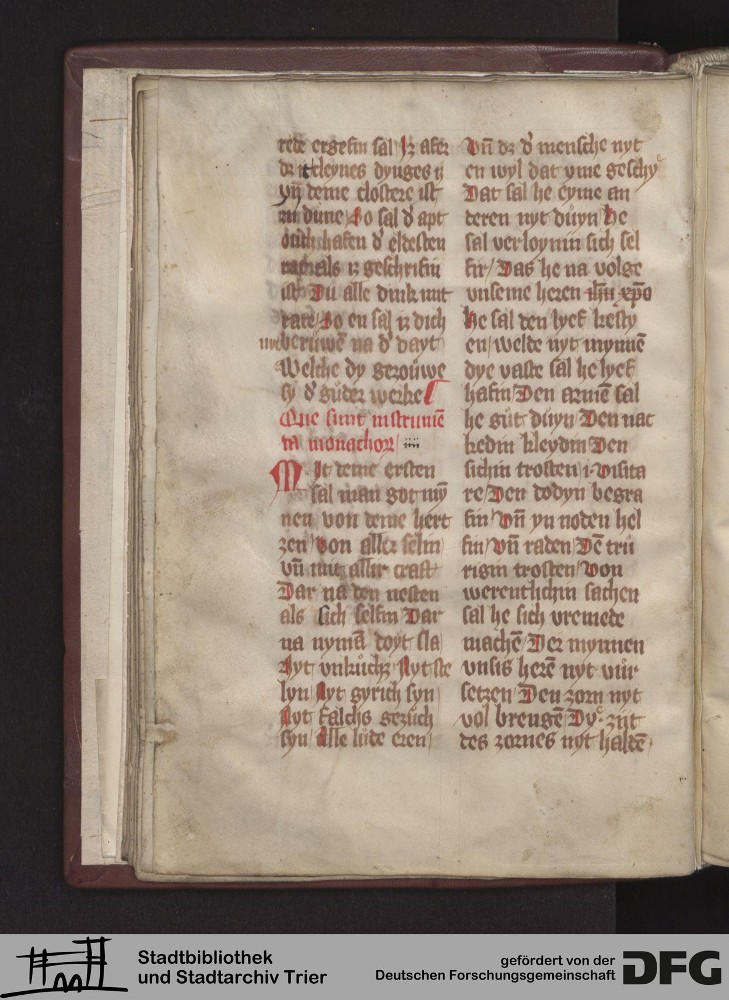 rede ergefin sal Iz aber
dz it cleynes dynges ii
yn deme clostere ist
zu dune So sal d' apt
doch hafen d' eldesten
rat als iz geschrifin
ist Du alle dink mit
rate So en sal iz dich
nyt beruwē na d' dayt
Welche dy gezoůwe
sy d' gůder werke
Que sunt instrumē
ta monachoꝝ iiii
Mit deme ersten
sal man got mȳ
nen von deme hert
zen von aller selin
vn̄ mit allir craft
Dar na den nesten
als sich selfin Dar
na nymā doyt sla
Nyt vnkůchz Nyt ste
lyn Nyt gyrich syn
Nyt falschs gezůch
syn Alle lude eren
Vn̄ dz d' mensche nyt
en wyl dat yme geschy
Dat sal he eyme an
deren nyt důyn He
sal verloynin sich sel
fin Das he na volge
vnseme heren ihū xp̄o
He sal den lyef kesty
en welde nyt mynnē
dye vaste sal he lyef
hafin Den armē sal
he gůt důyn Den nac
kedin kleydin Den
sichin trosten i visita
re Den dodyn begra
fin Vn̄ yn noden hel
fin Vn̄ raden Dē trů
rigin trosten Von
werentlichin sachen
sal he sich vremede
machē Der mynnen
vnsis herē nyt vůr
setzen Den zorn nyt
vol brengē Dy zijt
des zornes nyt haldē
Stadtbibliothek
und Stadtarchiv Trier
gefördert von der
Deutschen Forschungsgemeinschaft
DFG